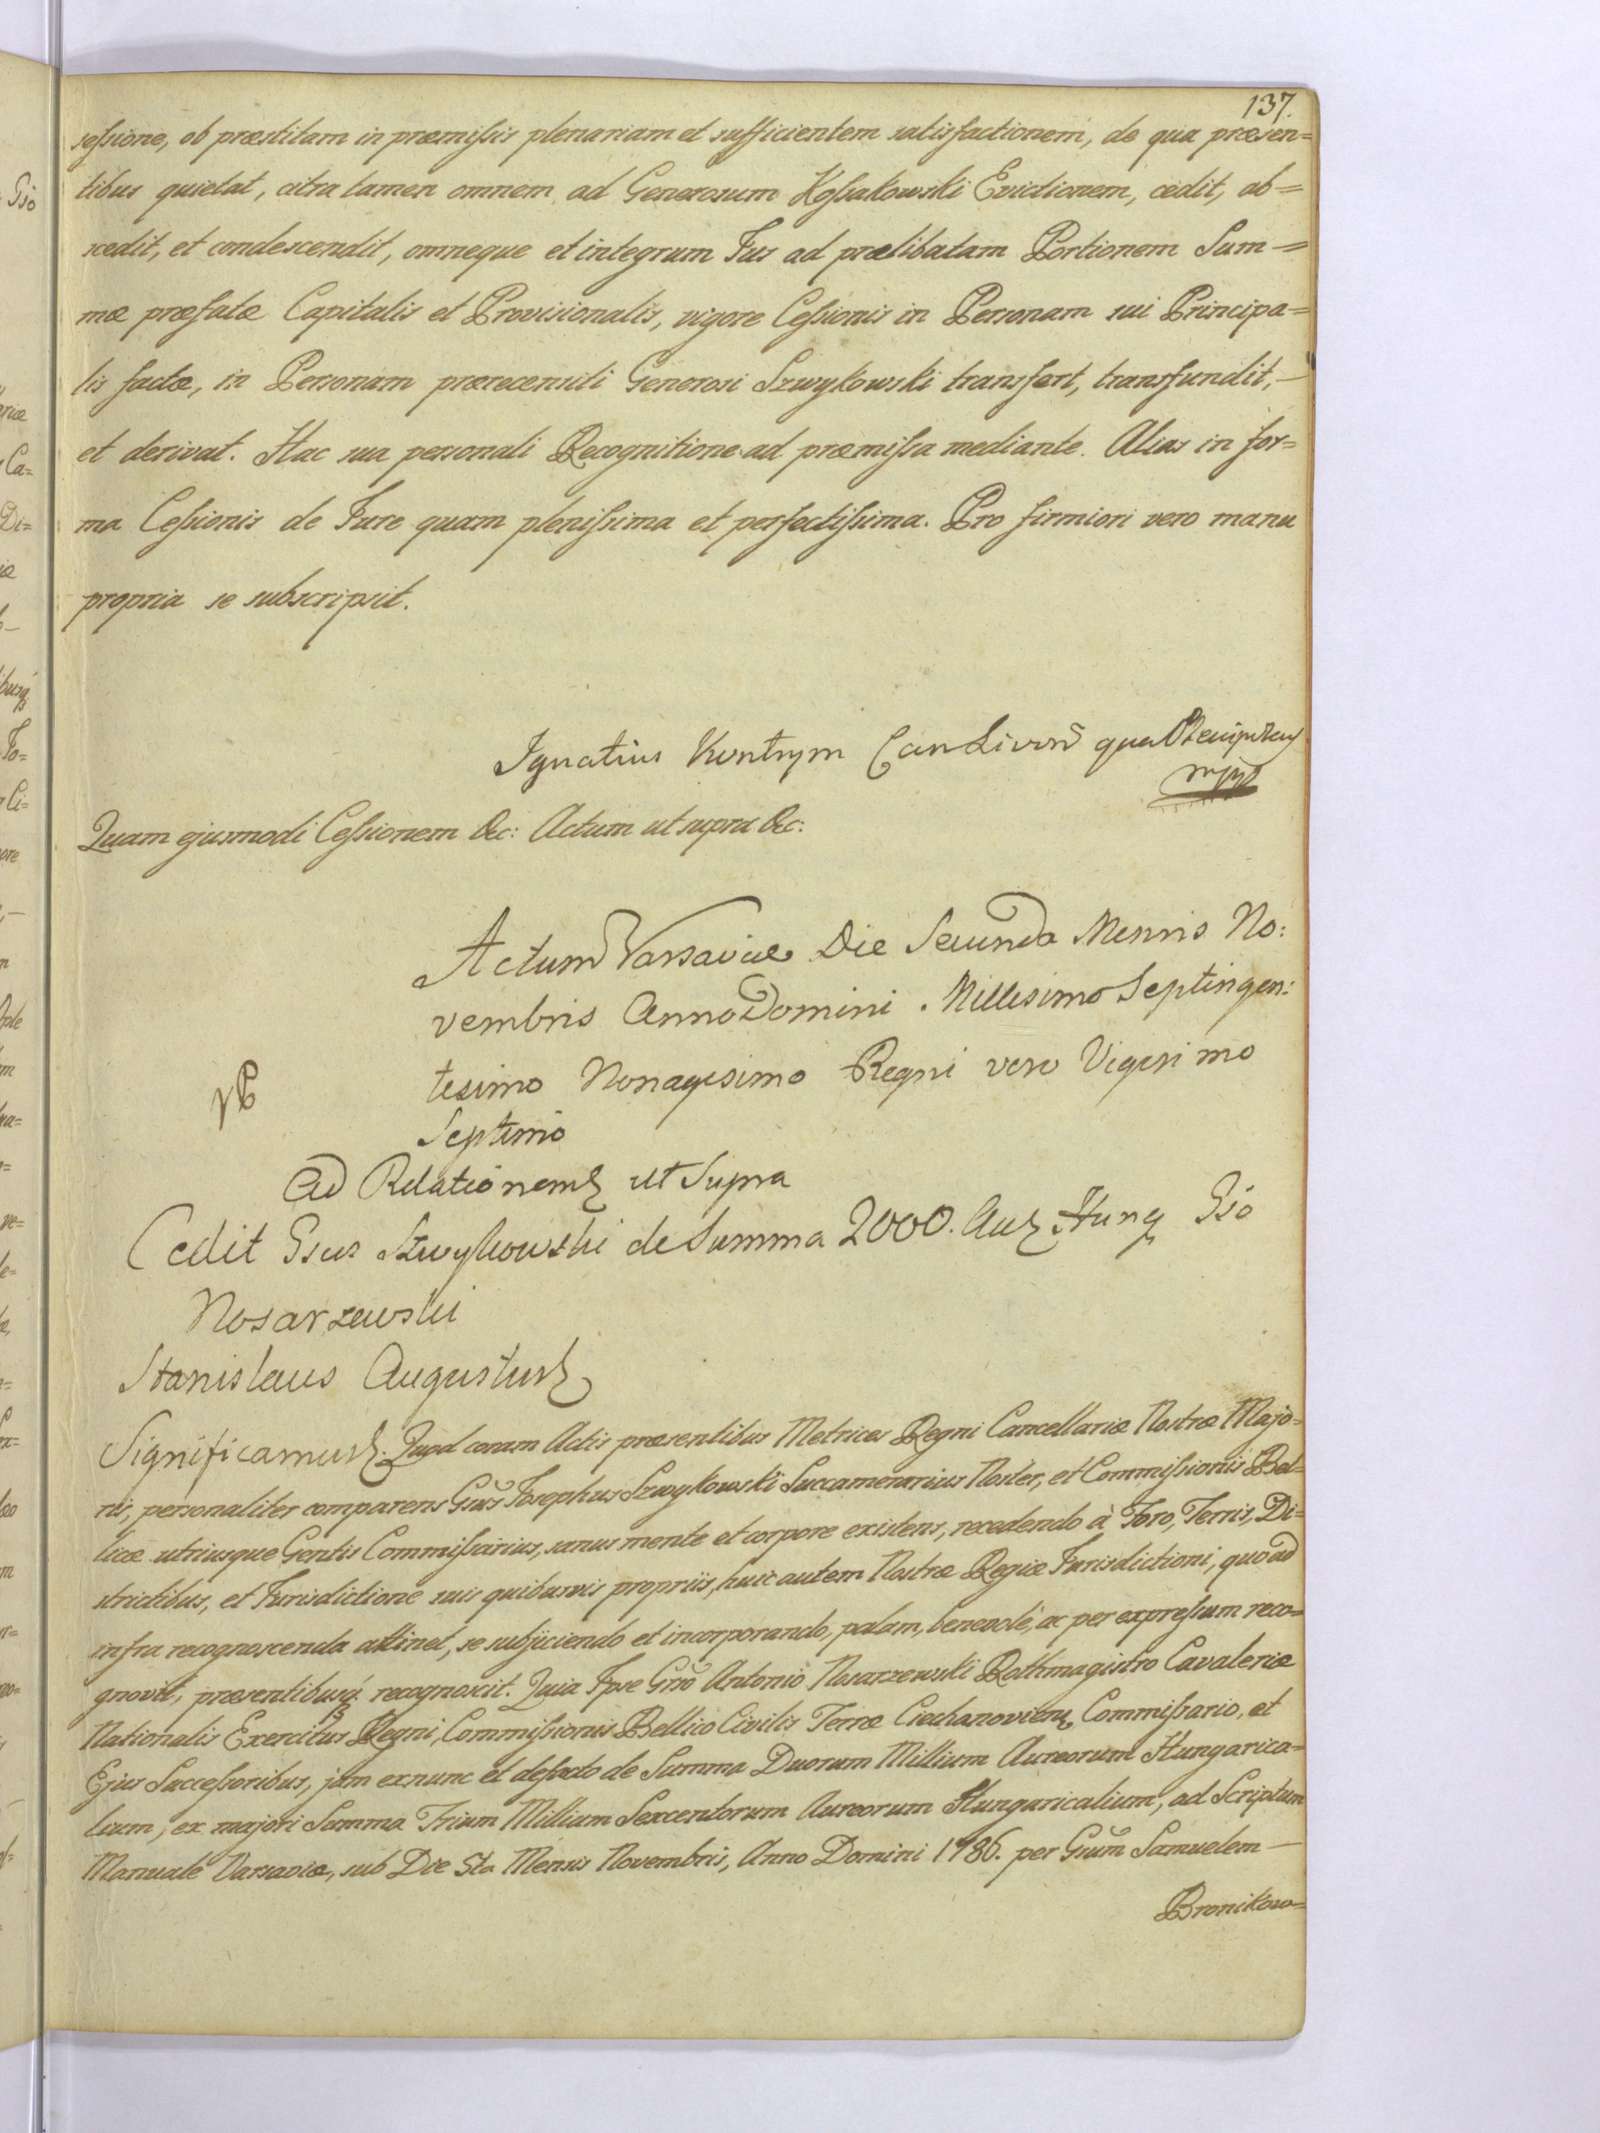 137.
sessione, ob præstitam in præmissis plenariam et sufficientem satisfactionem, de qua præsen=
tibus quietat, citra tamen omnem ad Generosum Kossakowski Evictionem, cedit, ab=
scedit, et condescendit, omneque et integrum Jus ad prælibatam Portionem Sum=
mæ præfatæ Capitalis et Provisionalis, vigore Cessionis in Personam sui Principa=
lis factæ, in Personam prærecensiti Generosi Szwykowski transfert, transfundit,—
et derivat. Hac sua personali Recognitione ad præmissa mediante. Alias in for=
ma Cessionis de Jure quam plenissima et perfectissima. Pro firmiori vero manu
propria se subscripsit.
Ignatius Kontrym Can Livon qua
mpp
Quam ejusmodi Cessionem &c: Actum ut supra &c:
Actum Varsaviæ Die Secunda Mensis No:
vembris Anno Domini Millesimo Septingen:
tesimo Nonagesimo Regni vero Vigesimo
Septimo
Ad Relationem ut Supra
Cedit Gsus Szwykowski de Summa 2000. Aur Hung Gso
Nosarzewski
Stanislaus Augustus
Significamus. Quod coram Actis præsentibus Metrices Regni Cancellariæ Nostræ Majo=
ris, personaliter comparens Gsus Josephus Szwykowski Succamerarius Noster, et Commissionis Bel=
licæ utriusque Gentis Commissarius, sanus mente et corpore existens, recedendo à Foro, Terris, Di=
strictibus, et Jurisdictione suis quibusvis propriis, huic autem Nostræ Regiæ Jurisdictioni, quo ad
infra recognoscenda attinet, se subjiciendo et incorporando, palam, benevolè, ac per expressum reco=
gnovit, præsentibusq; recognoscit. Quia Ipse Gso Antonio Nosarzewski Rothmagistro Cavaleriæ
Nationalis Exercitus Regni, Commissionis Bellico Civilis Terræ Ciechanovien, Commissario, et
Ejus Successoribus, jam exnunc et defacto de Summa Duorum Millium Aureorum Hungarica=
lium, ex majori Summa Trium Millium Sexcentorum Aureorum Hungaricalium, ad Scriptum
Manuale Varsaviæ, sub Die 5ta Mensis Novembris, Anno Domini 1786. per Gsum Samuelem—
Bronikow=